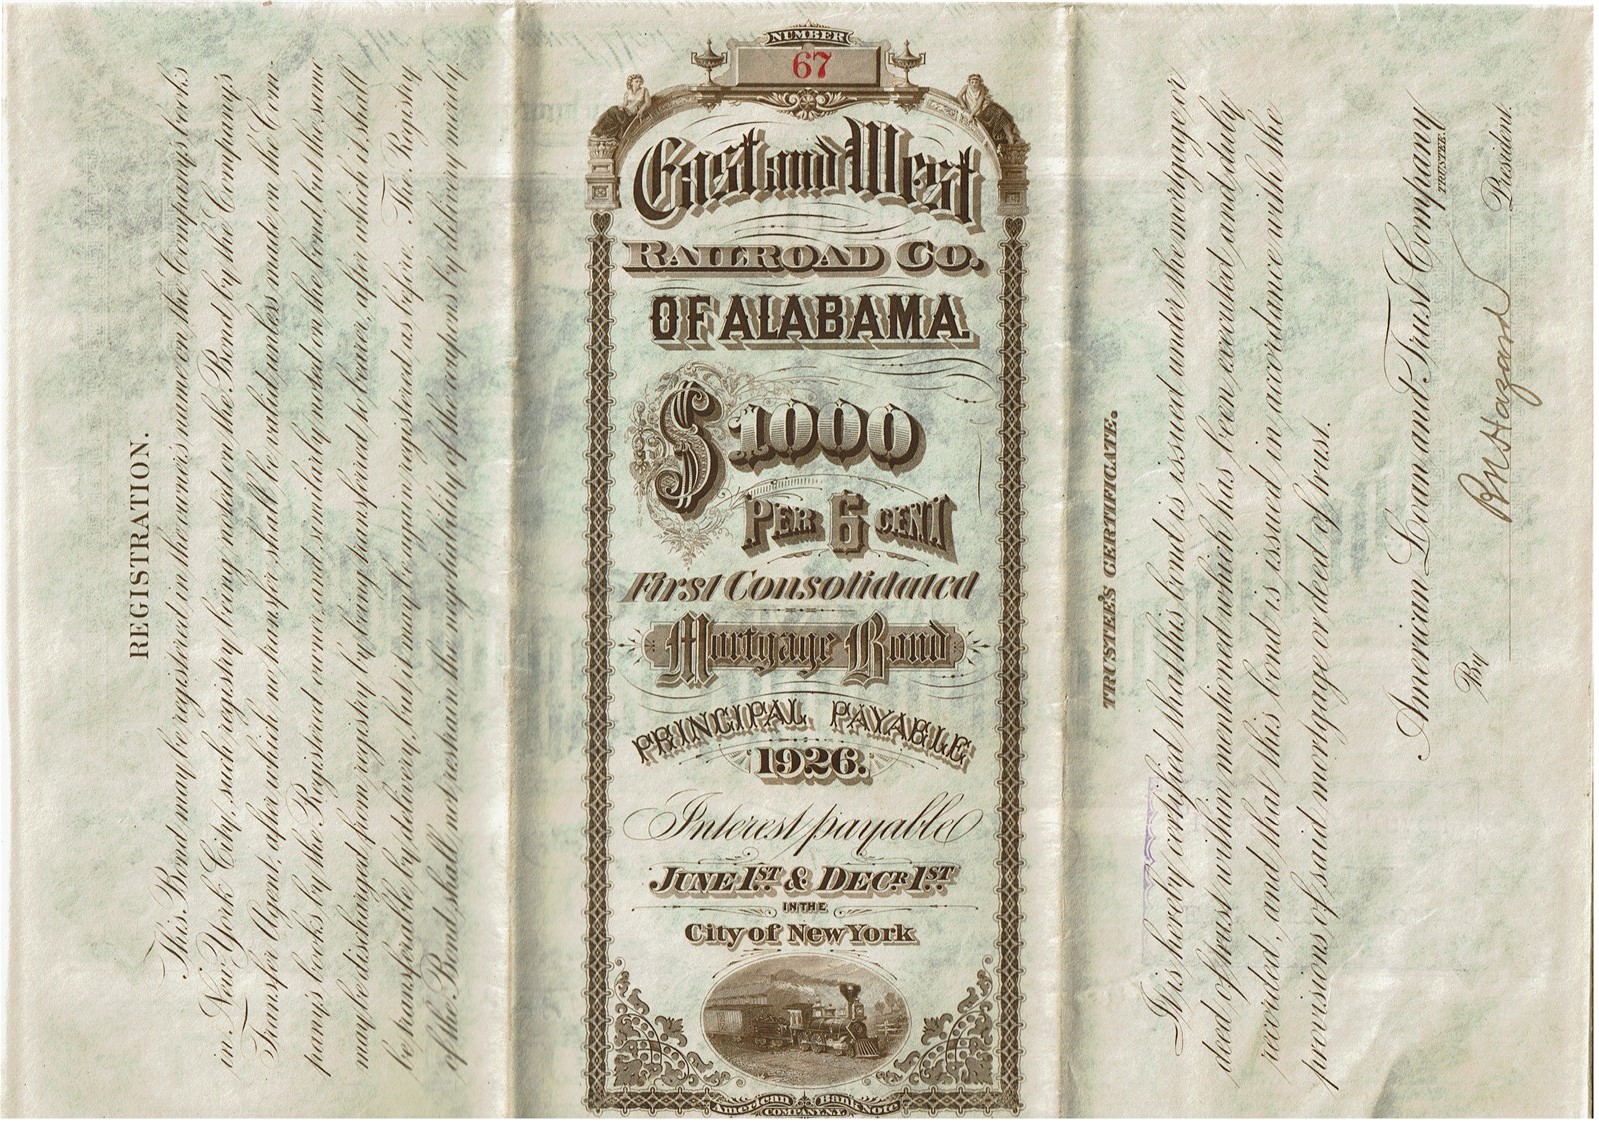 REGISTRATION.
This Bond may be registered in the owner's name on the Company's books
in New York City, such registry being noted on the Bond by the Company's
Transfer Agent, after which no transfer shall be valid unless made on the Com-
pany's books by the Registered owner, and similarly noted on the bond, but the same
may be discharged from registry by being transferred to bearer, after which it shall
be transferable by delivery, but it may be again registered as before. The Registry
of the Bond shall not restrain the negotiability of the coupons by delivery merely.
NUMBER
67
East and West
RAILROAD CO.
OF ALABAMA.
$1000
PER 6 CENT
First Consolidated
Mortgage Bond
PRINCIPAL PAYABLE
1926.
Interest payable
JUNE 1ST & DECR 1ST
IN THE
City of New York
American Bank Note
COMPANY N.Y.
TRUSTEE'S CERTIFICATE.
It is hereby certified that this bond is issued under the mortgage or
deed of trust within mentioned which has been executed and duly
recorded, and that this bond is issued in accordance with the
provisions of said mortgage or deed of trust.
American Loan and Trust Company
TRUSTEE.
By R N Hazard President.